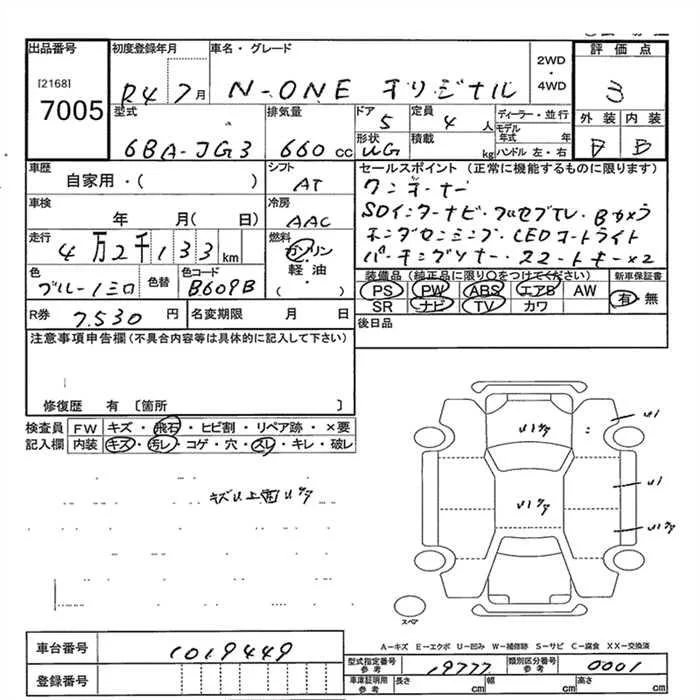 出品番号 初度登録年月 車名・グレード 評価点
[2168]
7005
R4 7月 N-ONE オリジナル
2WD
・
4WD
3
型式 排気量 ドア 定員 ディーラー・並行 外装 内装
6BA-JG3 660cc 5 4人
モデル年式 年
形状 積載
UG kg ハンドル 左・右
B
車歴 シフト セールスポイント (正常に機能するものに限ります)
自家用・( ) AT
ワンオーナー
車検 冷房
年 月( 日) AAC
SDインターナビ・フルセグTV・Bカメラ
走行 燃料
4万2千133km ガソリン
軽油
( )
ホンダセンシング・LEDオートライト
パーキングソナー・スマートキー×2
色 色替 色コード
ブルー/シロ B609B
装備品(純正品に限り○をつけてください) 新車保証書
PS PW ABS エアB AW 有・無
SR ナビ TV カワ
R券 7.530円 名変期限 月 日
後日品
注意事項申告欄(不具合内容等は具体的に記入して下さい)
修復歴 有 〔箇所 〕
検査員 FW キズ・飛石・ヒビ割・リペア跡・×要
記入欄 内装 キズ・汚レ・コゲ・穴・スレ・キレ・破レ
スペア
A-キズ E-エクボ U-凹み W-補修跡 S-サビ C-腐食 XX-交換済
車台番号 1019449
登録番号
型式指定番号 参考 19777 類別区分番号 参考 0001
車庫証明用 参考 長さ cm 幅 cm 高さ cm